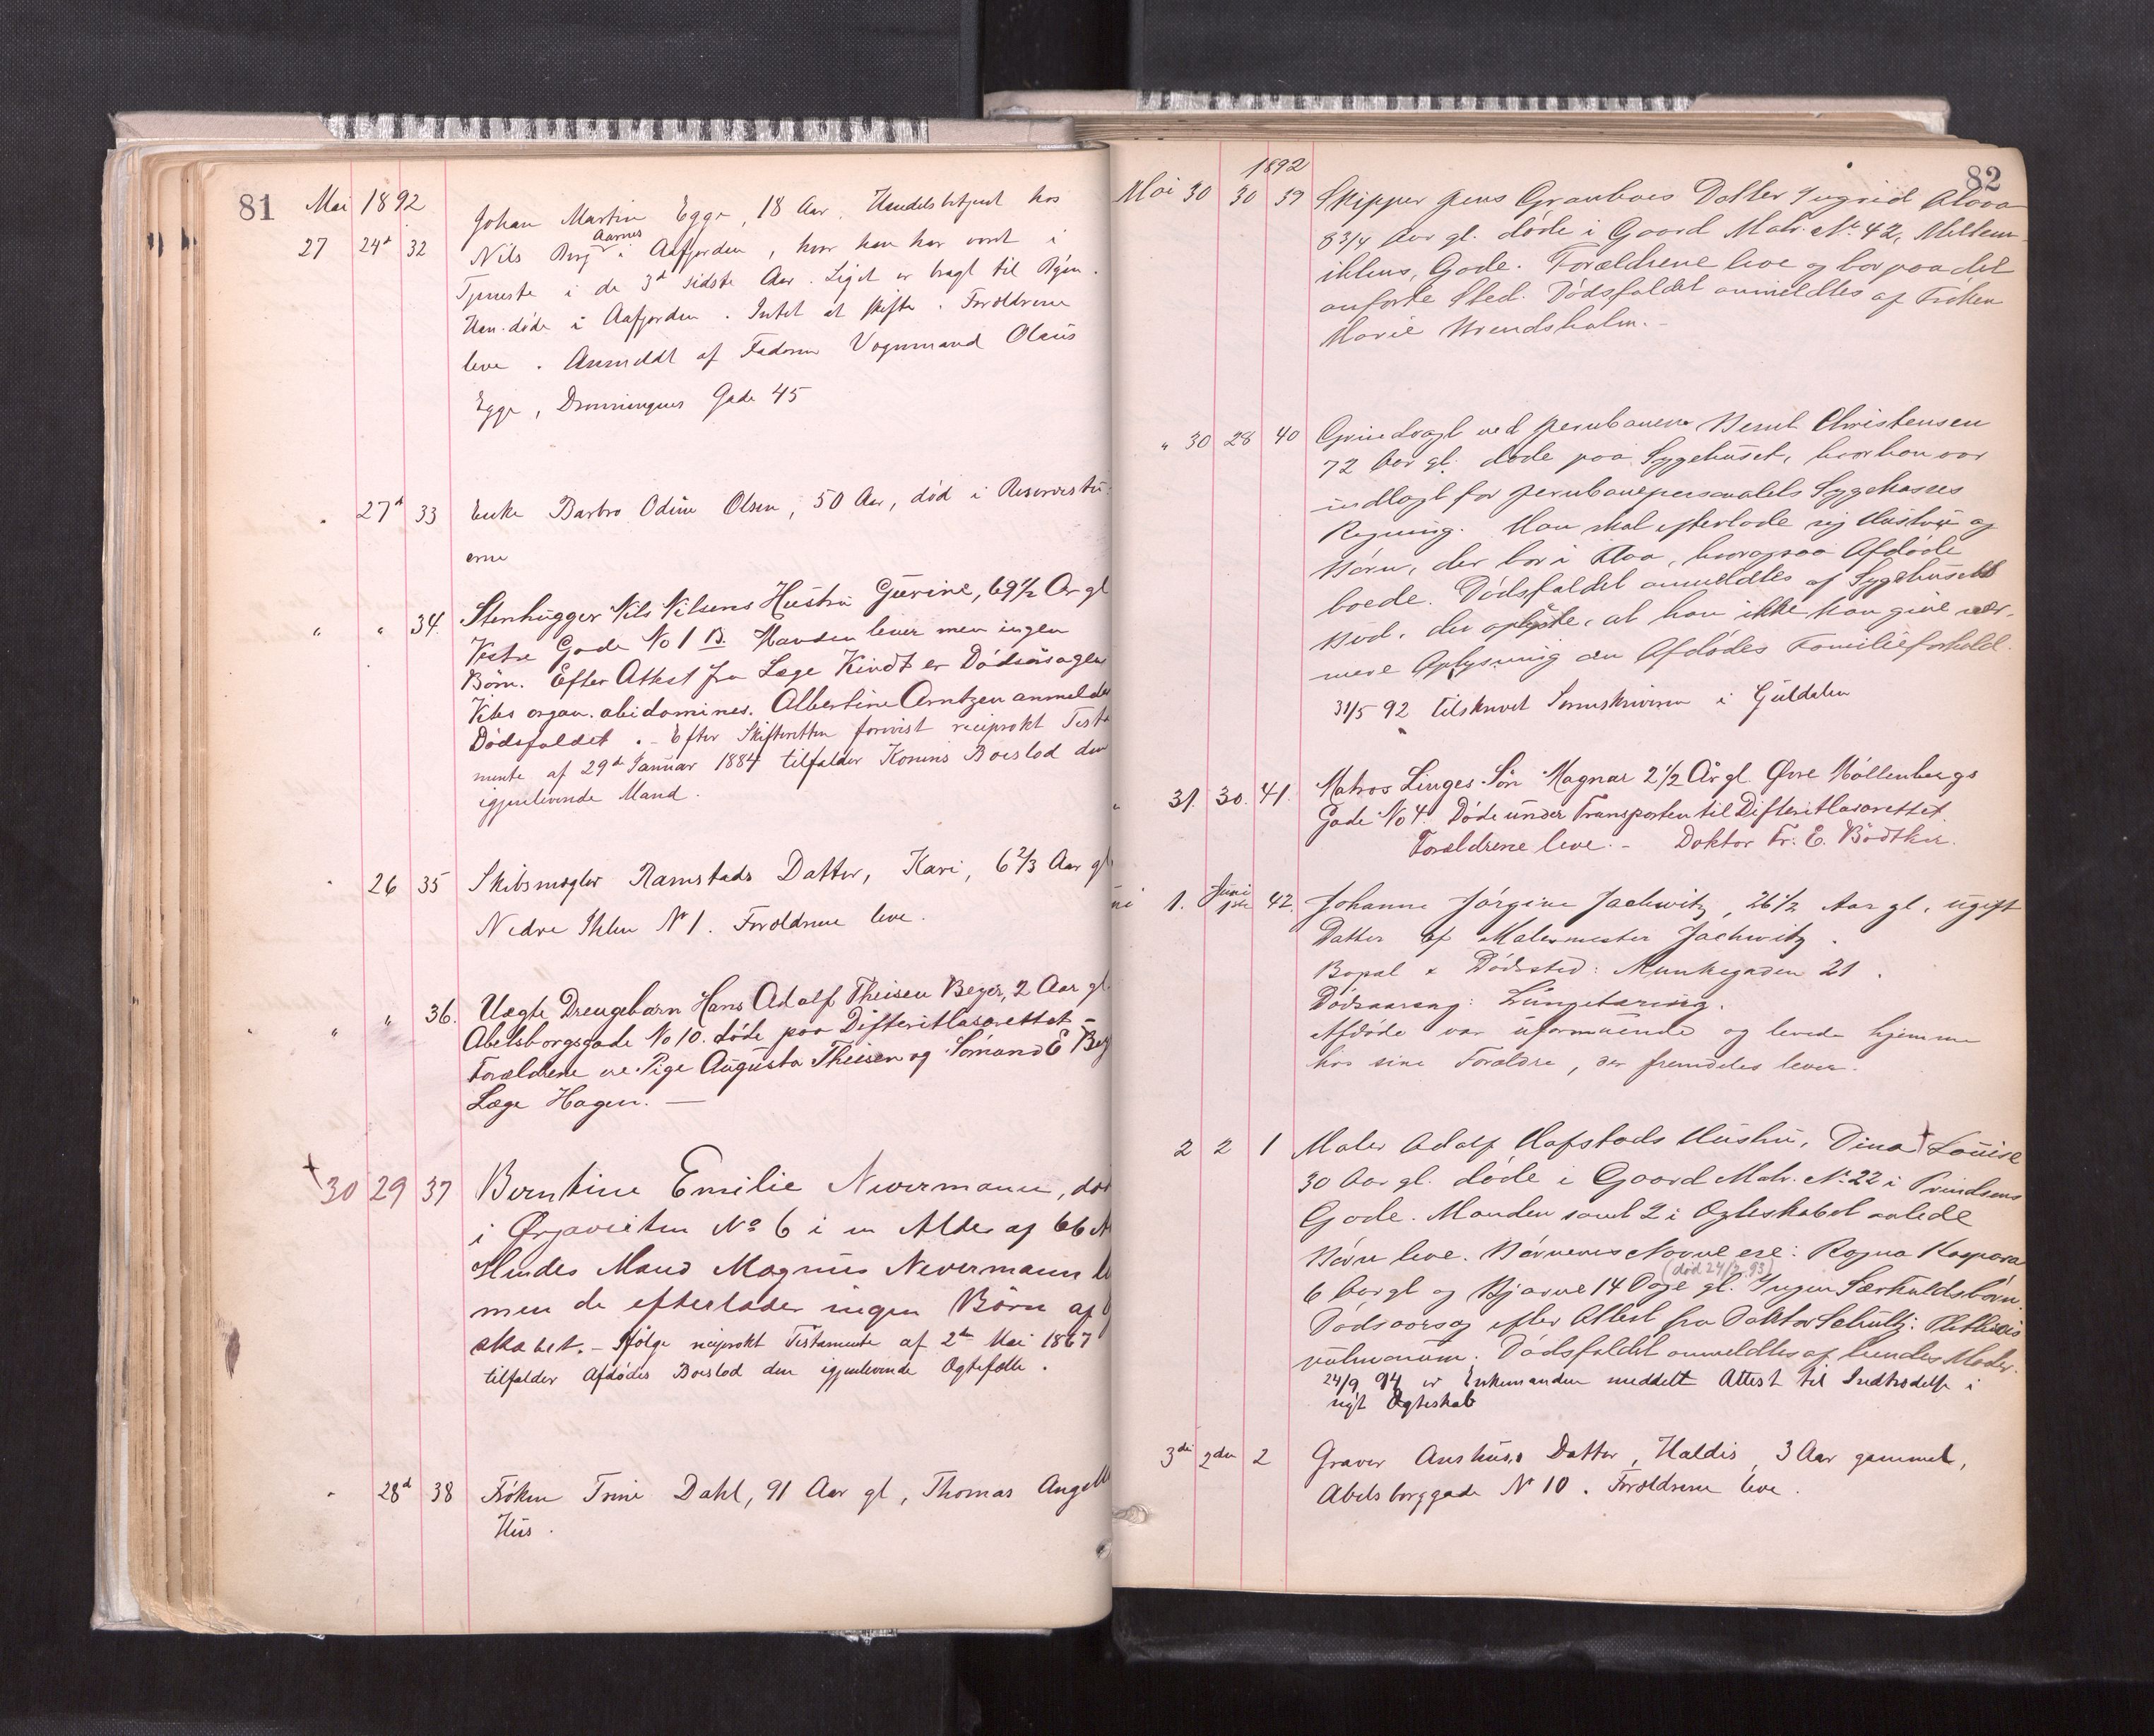 81
Mai 1892
27 24d 32 Johan Martin Egge, 18 Aar. Handelsbetjent hos
Nils Berg Aarnes i Aafjorden, hvor han har vært i
Tjeneste i de 3d sidste Aar. Liget er bragt til Byen.
Han døde i Aafjorden. Intet at skifte. Forældrene
leve. Anmeldt af Faderen Vognmand Olaus
Egge, Dronningens Gade 45
" 27d 33 Enke Barbro Odine Olsen, 50 Aar, død i Reservestu-
erne
" " 34. Stenhugger Nils Nilsens Hustru Gurine, 69 1/2 Ar gl
Vestre Gade No 1 B. Manden lever men ingen
Børn. Efter Attest fra Læge Kindt er Dødsårsagen
Vites organ. abidomines. Albertine Arntzen anmeldte
Dødsfaldet. - Efter Skifteretten forevist reciprokt Testa-
mente af 29de Januar 1884 tilfalder Konens Boeslod den
igjenlevende Mand.
" 26 35 Skibsmægler Ramstads Datter, Kari, 6 2/3 Aar gl
Nedre Ihlen No 1. Forældrene leve.
" " 36. Uægte Drengebarn Hans Adolf Theisen Beyer, 2 Aar gl.
Abelsborggade No 10. døde paa Difteritlasarettet -
Forældrene ere Pige Augusta Theisen og Sømand E Bey
Læge Hagen. -
30 29 37 Berntine Emilie Nevermann, død
i Ørjaveiten No 6 i en Alder af 66 A
Hendes Mand Magnus Nevermann le
men de efterlader ingen Børn af
skabet. - Ifølge reciprokt Testamente af 2den Mai 1867
tilfalder Afdødes Boeslod den igjenlevende Ægtefælle.
" 28d 38 Frøken Trine Dahl, 91 Aar gl, Thomas Angells
Hus.
82
1892
Mai 30 30 39 Skipper Jens Granboes Datter Ingrid Aloa
8 3/4 Aar gl. døde i Gaard Matr. No. 42, Mellem-
ihlens Gade. Forældrene leve og bor paa det
anførte Sted. Dødsfaldet anmeldtes af Frøken
Marie Brendsholm. -
" 30 28 40 Grindvagt ved Jernbanen Bernt Christensen
72 Aar gl. døde paa Sygehuset, hvor han var
indlagt for Jernbanepersonalets Sygekasses
Regning. Han skal efterlade sig Hustru og
Børn, der bor i Aaa, hvor ogsaa Afdøde
boede. Dødsfaldet anmeldtes af Sygehusets
Bud, der oplyste, at han ikke kan give nær-
mere Oplysning om Afdødes Familieforhold.
31/5 92 tilskrevet Sorenskriveren i Guldalen
" 31. 30. 41. Matros Linges Søn Magnar 2 1/2 År gl. Øvre Møllenbergs
Gade No 4. Døde under Transporten til Difteritlasarettet.
Forældrene leve. - Doktor Fr. E. Bødtker.
ni 1. Juni 1ste 42. Johanne Jørgine Jachwitz, 26 1/2 Aar gl, ugift
Datter af Malermester Jachwitz.
Bopæl & Dødssted: Munkegaden 21.
Dødsaarsag: Lungetæring.
Afdøde var uformuende og levede hjemme
hos sine Forældre, der fremdeles lever.
2 2 1 Maler Adolf Hafstads Hustru, Dina Louise
30 Aar gl. døde i Gaard Matr. No. 22 i Prindsens
Gade. Manden samt 2 i Ægteskabet avlede
Børn leve. Børnenes Navne ere: Ragna Kaspara
6 Aar gl og Bjarne 14 Dage gl. (død 24/2 93) Ingen Særkuldsbørn.
Dødsaarsag efter Attest fra Doktor Schultz: Phthisis
pulmonum. Dødsfaldet anmeldtes af hendes Moder.
24/9 94 er Enkemanden meddelt Attest til Indtrædelse i
nyt Ægteskab
3die 2den 2 Graver Aushus's Datter, Haldis, 3 Aar gammel,
Abelsborggade No 10. Forældrene leve.